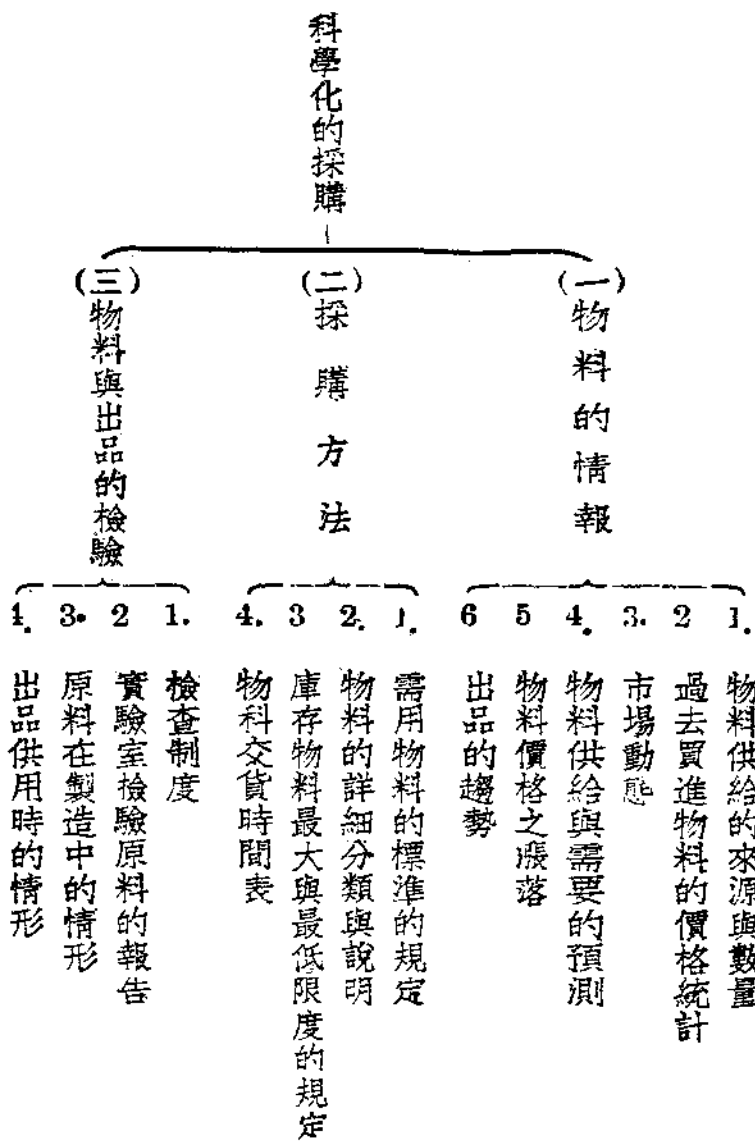 科學化的採購
(一)物料的情報
1. 物料供給的來源與數量
2 過去買進物料的價格統計
3. 市場動態
4. 物料供給與需要的預測
5 物料價格之漲落
6 出品的趨勢
(二)採購方法
1. 需用物料的標準的規定
2. 物料的詳細分類與說明
3 庫存物料最大與最低限度的規定
4. 物科交貨時間表
(三)物料與出品的檢驗
1. 檢查制度
2 實驗室檢驗原料的報告
3. 原料在製造中的情形
4. 出品供用時的情形